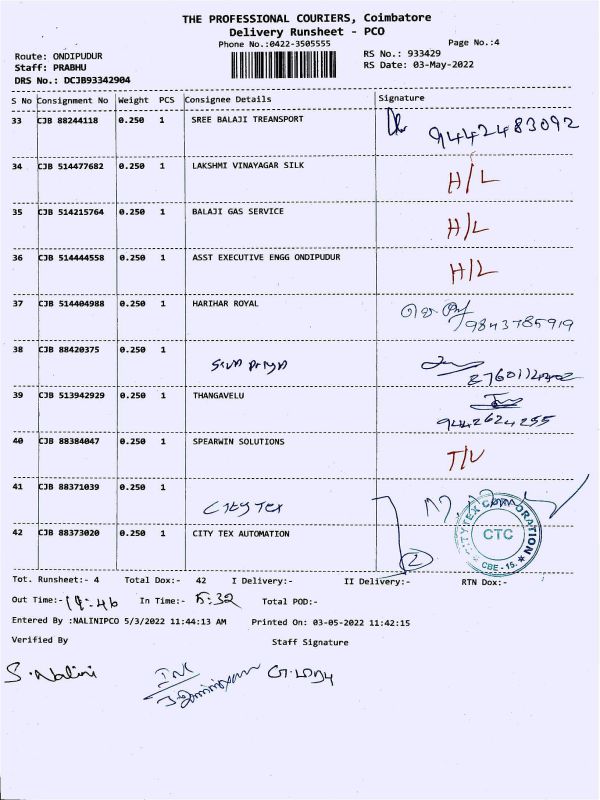 THE PROFESSIONAL COURIERS, Coimbatore
Delivery Runsheet - PCO
Phone No.:0422-3505555
Page No.:4
Route: ONDIPUDUR
RS No.: 933429
Staff: PRABHU
RS Date: 03-May-2022
DRS No.: DCJB93342904
S No Consignment No Weight PCS Consignee Details Signature
33 CJB 88244118 0.250 1 SREE BALAJI TREANSPORT 9442483092
34 CJB 514477682 0.250 1 LAKSHMI VINAYAGAR SILK H/L
35 CJB 514215764 0.250 1 BALAJI GAS SERVICE H/L
36 CJB 514444558 0.250 1 ASST EXECUTIVE ENGG ONDIPUDUR H/L
37 CJB 514404988 0.250 1 HARIHAR ROYAL 9843785919
38 CJB 88420375 0.250 1
39 CJB 513942929 0.250 1 THANGAVELU 9442624255
40 CJB 88384047 0.250 1 SPEARWIN SOLUTIONS T/V
41 CJB 88371039 0.250 1 City Tex
42 CJB 88373020 0.250 1 CITY TEX AUTOMATION 2
CITYTEX CORPORATION
CTC
CBE - 15.
Tot. Runsheet:- 4 Total Dox:- 42 I Delivery:- II Delivery:- RTN Dox:-
Out Time:- In Time:- 5:32 Total POD:-
Entered By :NALINIPCO 5/3/2022 11:44:13 AM Printed On: 03-05-2022 11:42:15
Verified By Staff Signature
S. Nalini